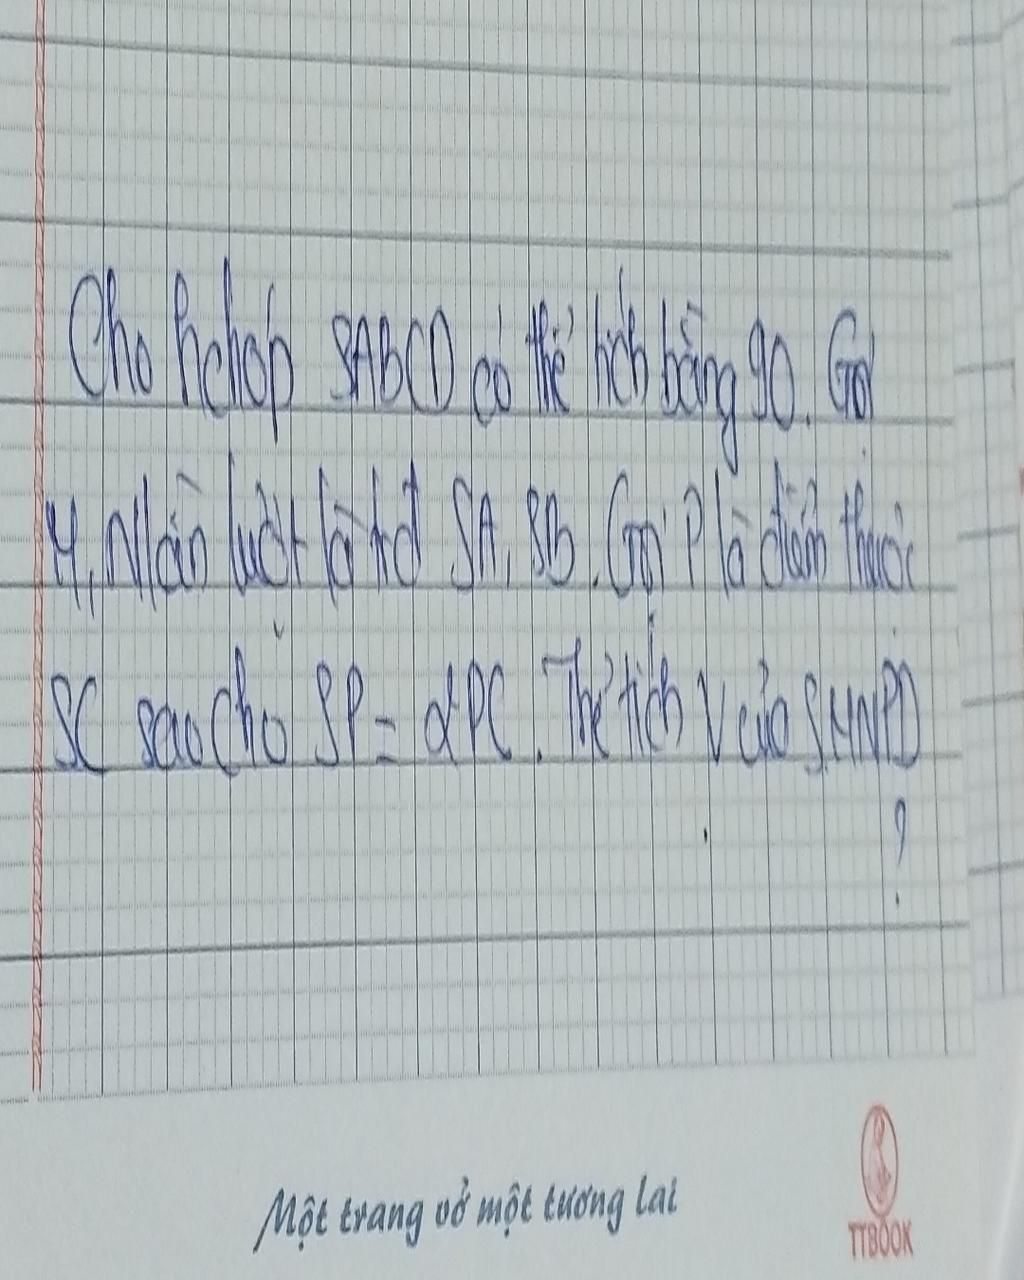 Cho hchóp SABCD có thể tích bằng 90. Gọi
M, N lần lượt là tđ SA, SB. Gọi P là điểm thuộc
SC sao cho SP = 2PC. Thể tích V của S.MNPD
?
Một trang vở một tương lai
TTBOOK